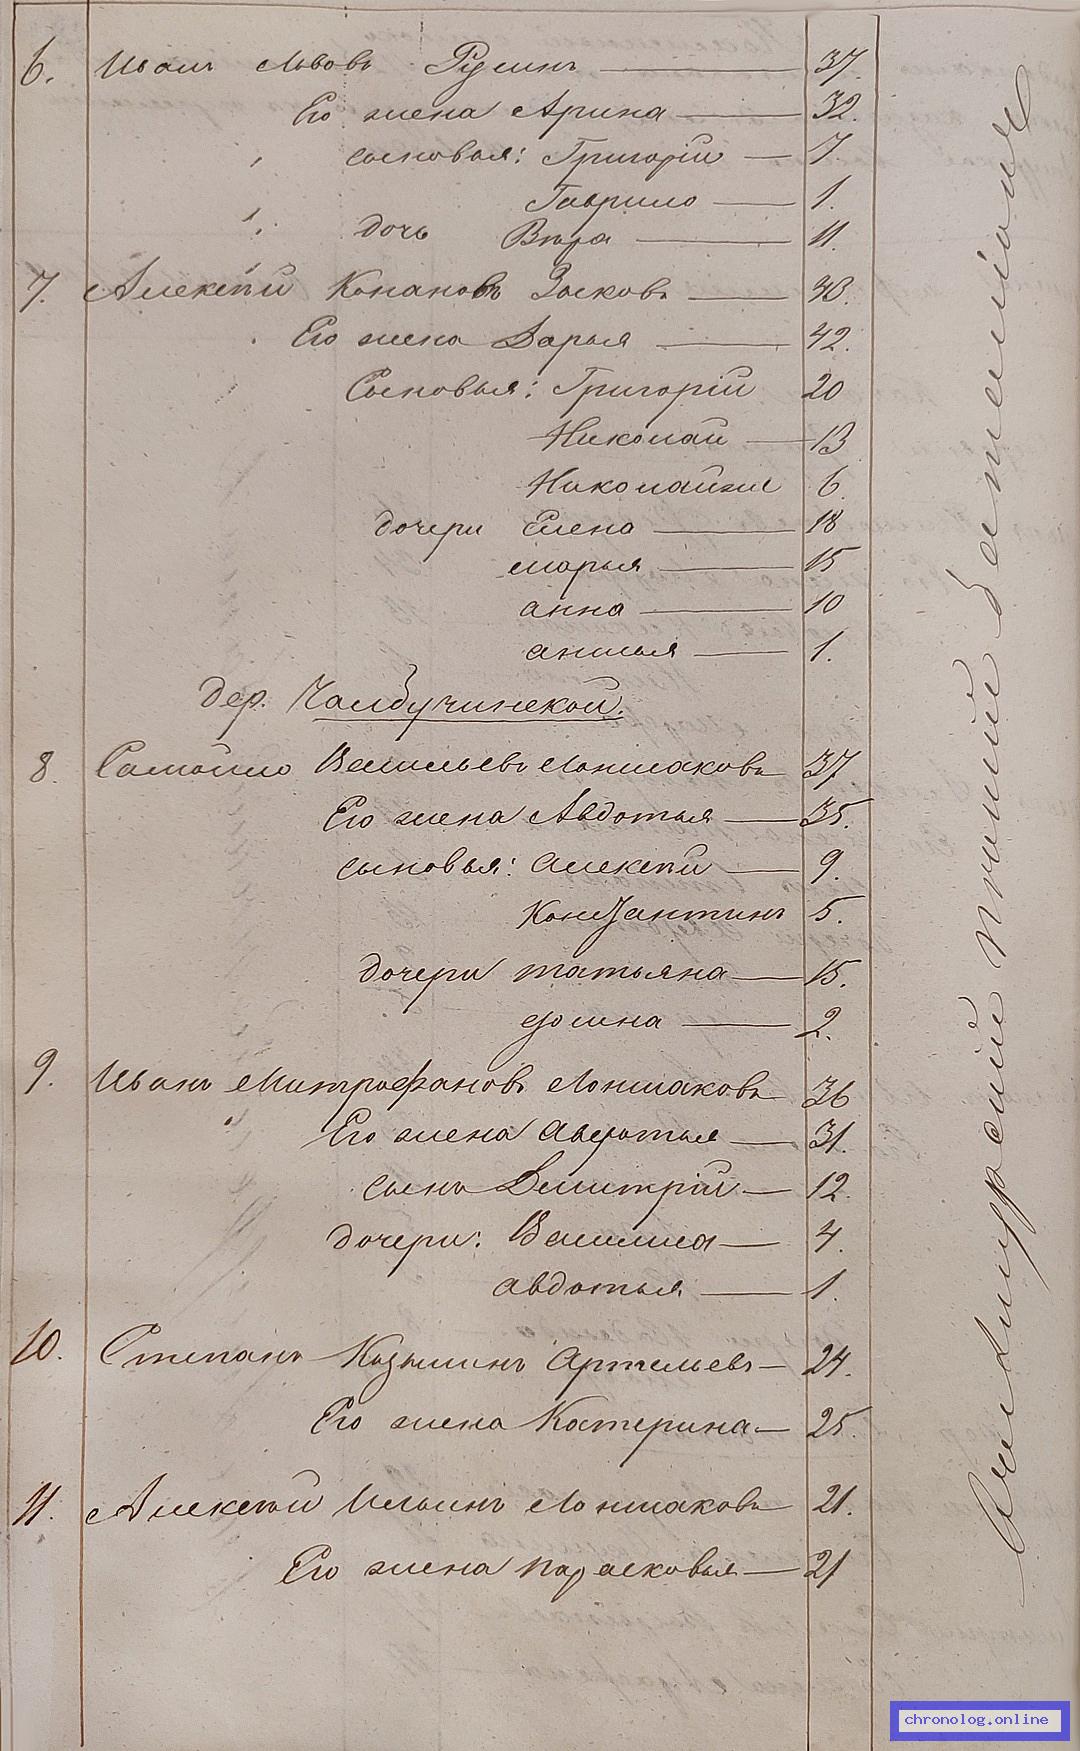 6. Иванъ Львовъ Русинъ — 37.
Его жена Арина — 32.
сыновья: Григорій — 7.
Гаврило — 1.
дочь Вѣра — 11.
7. Алексѣй Конановъ Зыковъ — 43.
Его жена Дарья — 42.
Сыновья: Григорій 20
Николай — 13
Николай же 6
дочери Елена — 18
марья — 15
анна — 10
анисья — 1.
дер. Чалбучинской.
8. Самойло Васильевъ Лоншаковъ 37
Его жена Авдотья — 35.
сыновья: Алексѣй — 9.
Константинъ 5.
дочери татьяна — 15.
2.
9. Иванъ Митрофановъ Лоншаковъ 36
Его жена Авдотья — 31.
сынъ Димитрій — 12.
дочери: Василиса — 4.
авдотья — 1.
10. Степанъ Козьминъ Артемьевъ — 24.
Его жена Катерина — 25.
11. Алексѣй Ильинъ Лоншаковъ 21.
Его жена Парасковья — 21
пѣшій баталіонъ
chronolog.online